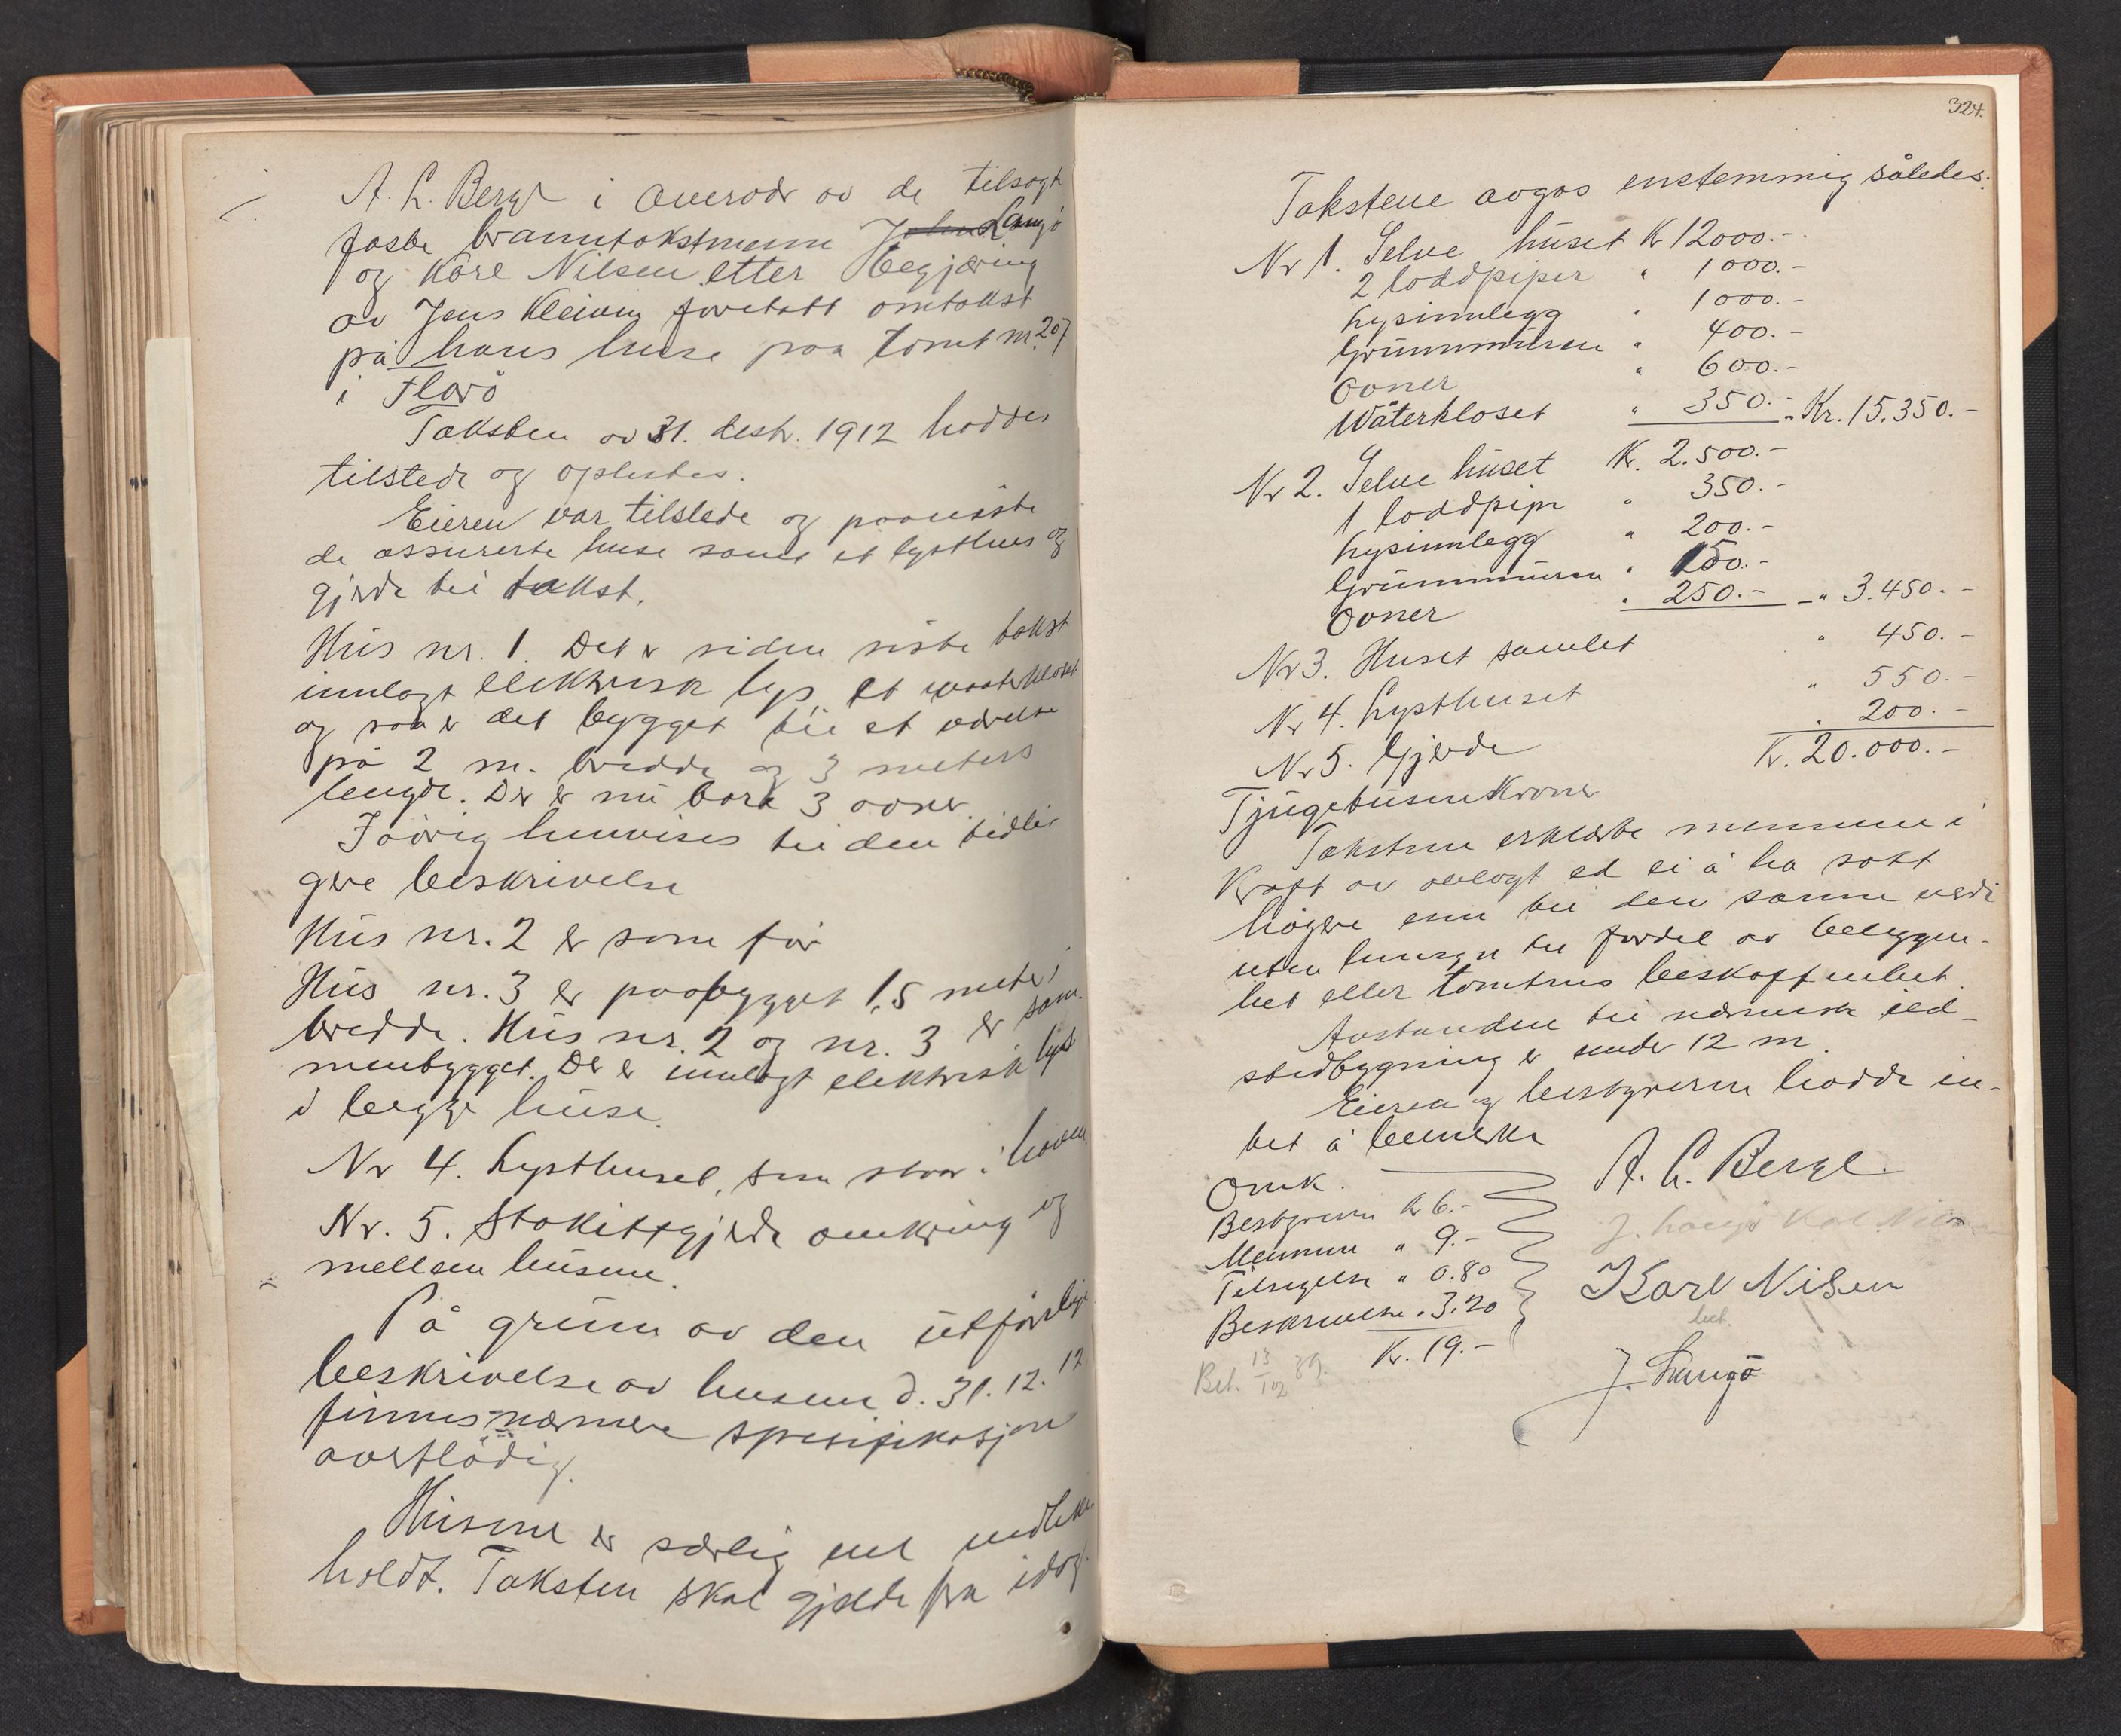 A. L. Berge i overvær av de tilsagte
faste branntakstmenn Johan Langö
og Kåre Nilsen etter begjæring
av Jens Kleiven foretatt omtakst
på hans huse paa tomt nr. 207
i Florö
Taksten av 31. desbr. 1912 haddes
tilstede og oplestes.
Eieren var tilstede og paaviste
de assurerte huse samt et lysthus og
gjerde til takst.
Hus nr. 1. Det er siden siste takst
innlagt elektrisk lys, et waterkloset
og saa er det bygget til et værelse
på 2 m. bredde og 3 meters
lengde. Der er nu bare 3 ovner.
Iövrig henvises til den tidli-
gere beskrivelse
Hus nr. 2 er som för
Hus nr. 3 er paabygget 1,5 meter i
bredde. Hus nr. 2 og nr. 3 er sam-
menbygget. Der er innlagt elektrisk lys
i begge huse.
Nr 4. Lysthuset, som staar i haven
Nr. 5. Stakittgjerde omkring og
mellem husene.
På grunn av den utförlige
beskrivelse av husene d. 31.12.12
finnes nærmere spesifikasjon
overflödig.
Husene er særlig vel vedlike-
holdt. Taksten skal gjelde fra idag.
324.
Takstene avgas enstemmig således:
Nr 1. Selve huset Kr 12000.-
2 loddpiper " 1000.-
Lysinnlegg " 1000.-
Grunnmuren " 400.-
Ovner " 600.-
Waterkloset " 350.- Kr. 15.350.-
Nr 2. Selve huset Kr. 2.500.-
1 loddpipe " 350.-
Lysinnlegg " 200.-
Grunnmuren " 150.-
Ovner " 250.- " 3.450.-
Nr 3. Huset samlet " 450.-
Nr 4. Lysthuset " 550.-
Nr 5. Gjerde " 200.-
Kr. 20.000.-
Tjugetusen Kroner
Takstene erklærte mennene i
kraft av avlagt ed ei å ha satt
högere enn til den sanne verdi
uten hensyn til fordel av beliggen-
het eller tomtens beskaffenhet.
Avstanden til nærmeste ild-
stedbygning er under 12 m.
Eieren og bestyreren hadde in-
tet å bemerke
Omk.
Bestyreren Kr 6.-
Mennene " 9.-
Tilsigelse " 0.80
Beskrivelse " 3.20
Kr. 19.-
Bet. 13/12 39.
A. L. Berge.
J. Langö Karl Nilsen
Karl Nilsen
bet.
J. Langö